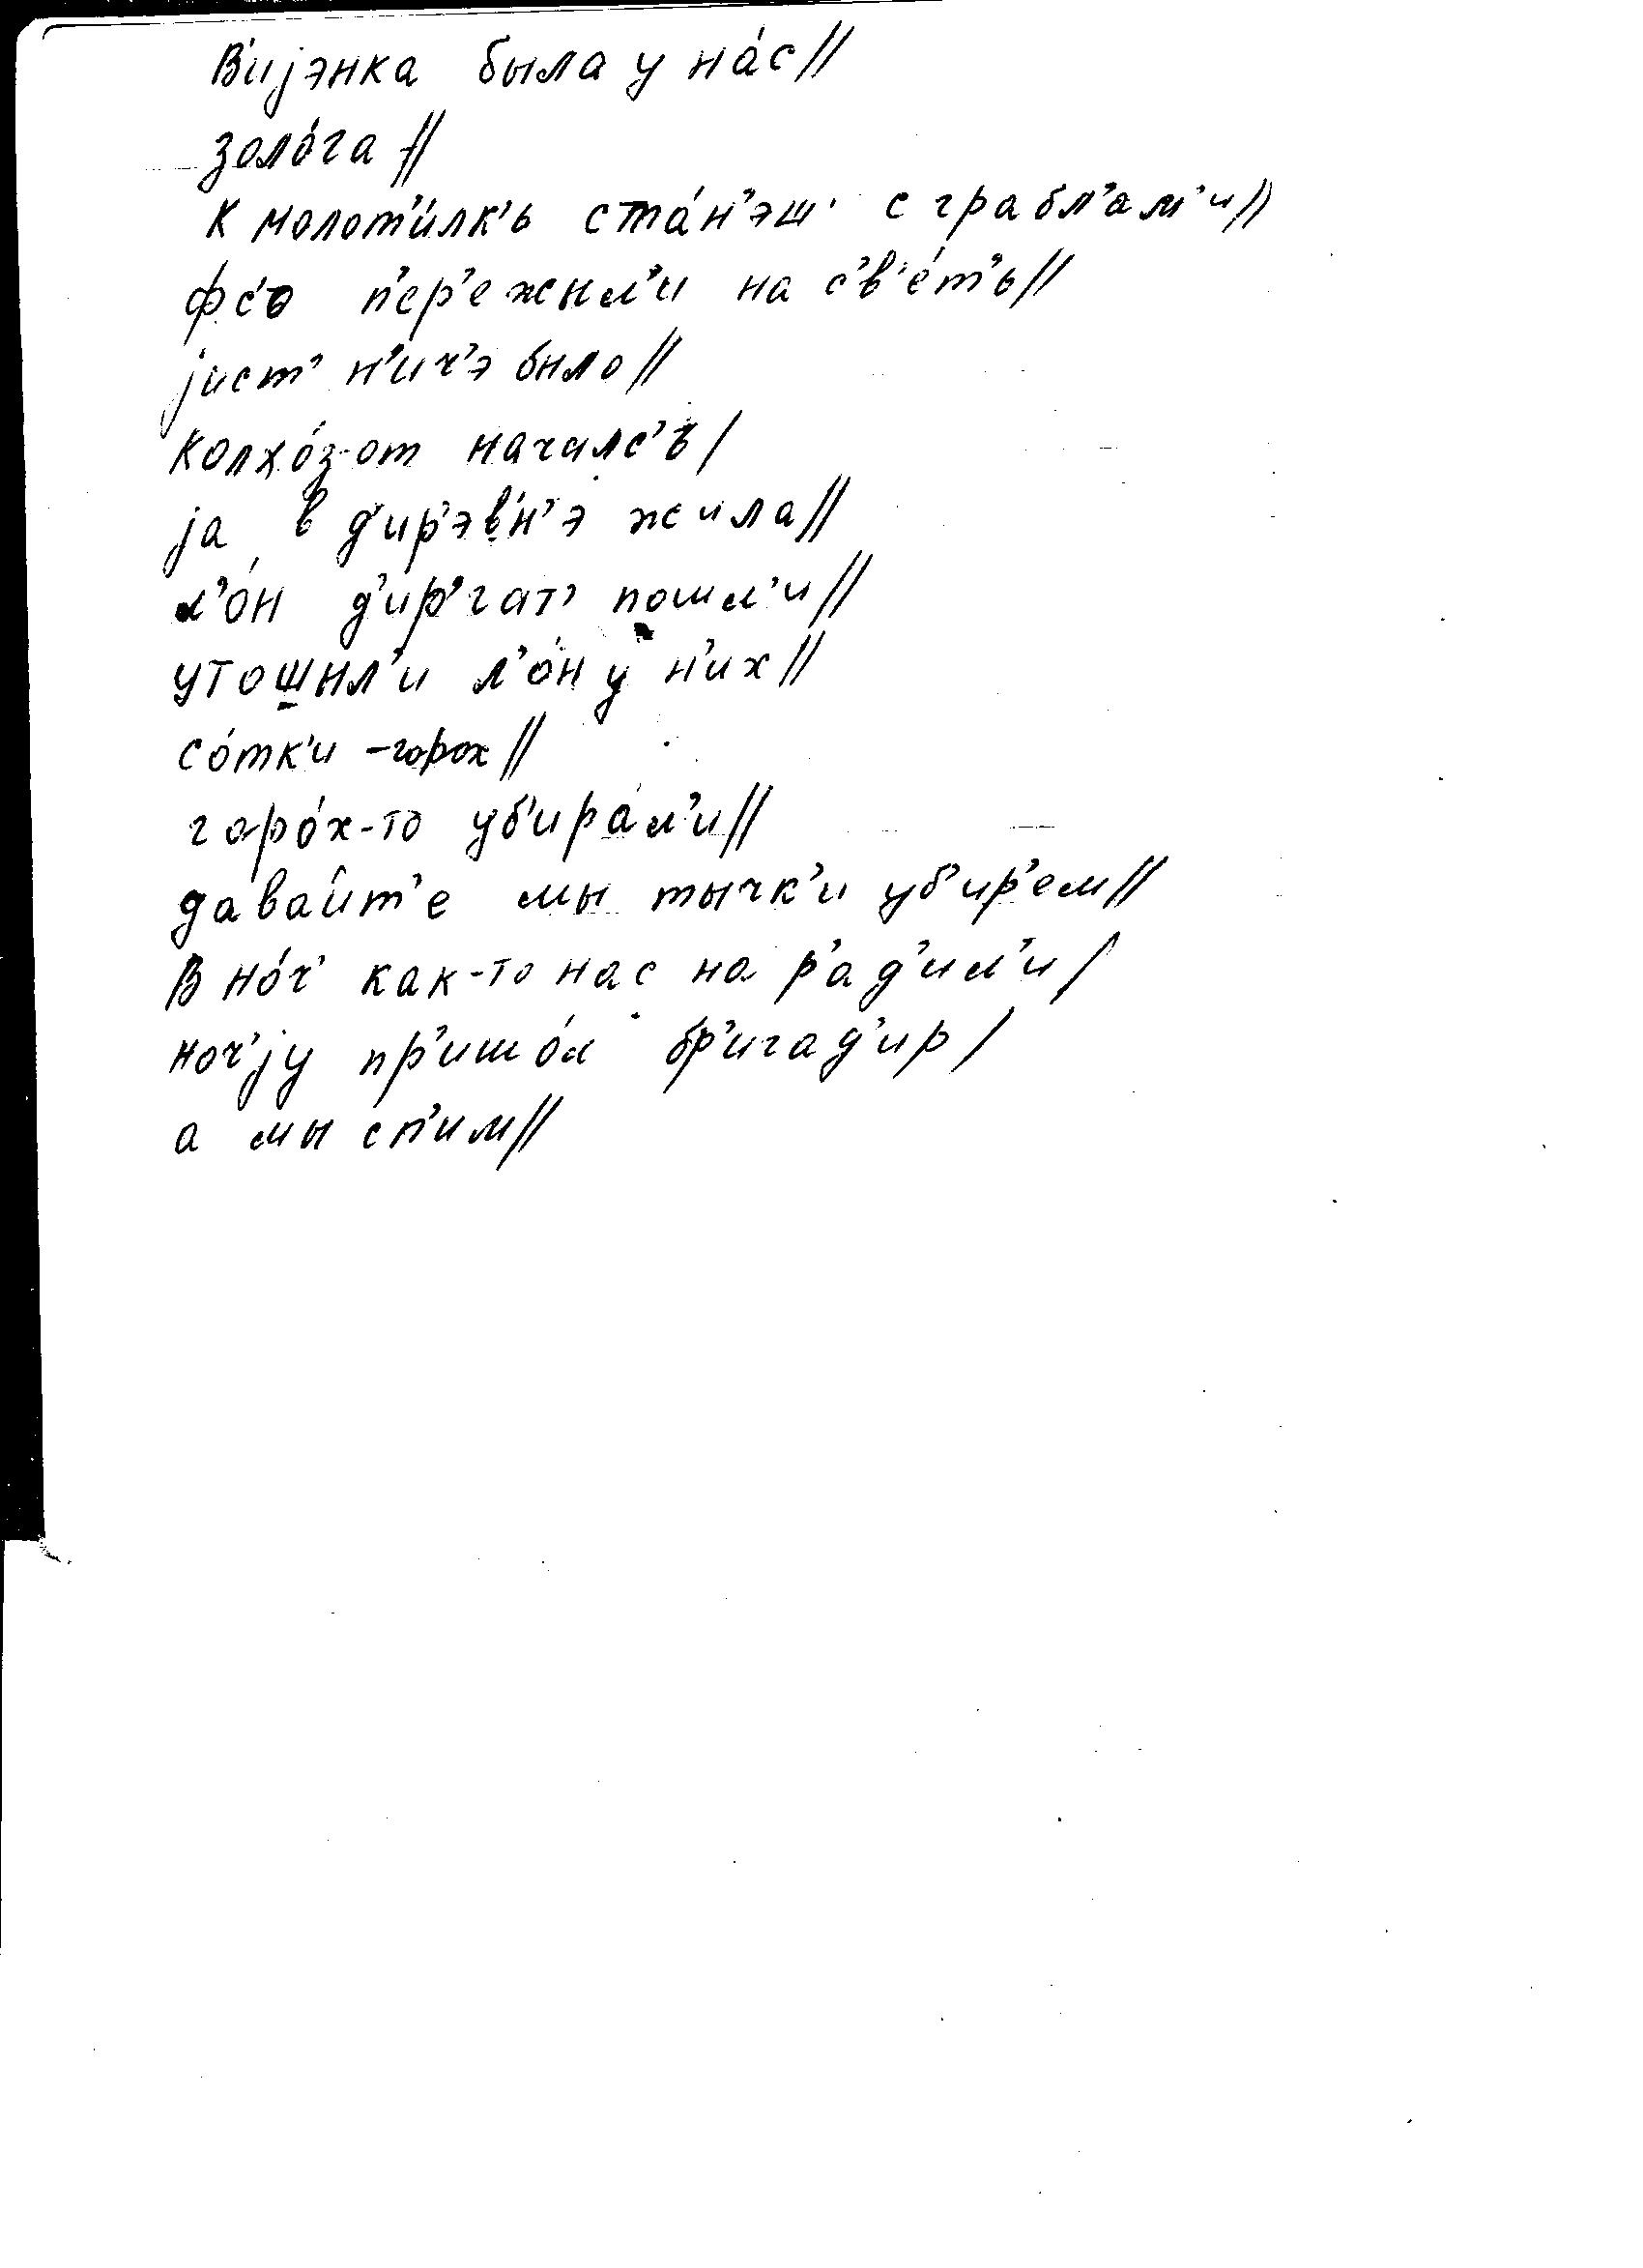 В'ијэнка была у на́с//
золо́га //
К молот'и́лк'ь ста́н'эш' с грабл'ам'и//
фс'о п'ер'ежыл'и на с'в'е́т'ь//
јист' н'ич'э было//
Колхо́з-от начялс'ъ/
ја в д'ир'э́вн'э жила//
л'о́н д'ир'гат' пошл'и//
утошыл'и л'о́н у н'их//
со́тк'и -горох//
горо́х-то уб'ира́л'и//
давайт'е мы тычк'и уб'ир'ем//
В но́ч' как-то нас нар'ад'ил'и/
ноч'ју пр'ишо́л бр'игад'ир/
а мы сп'им//